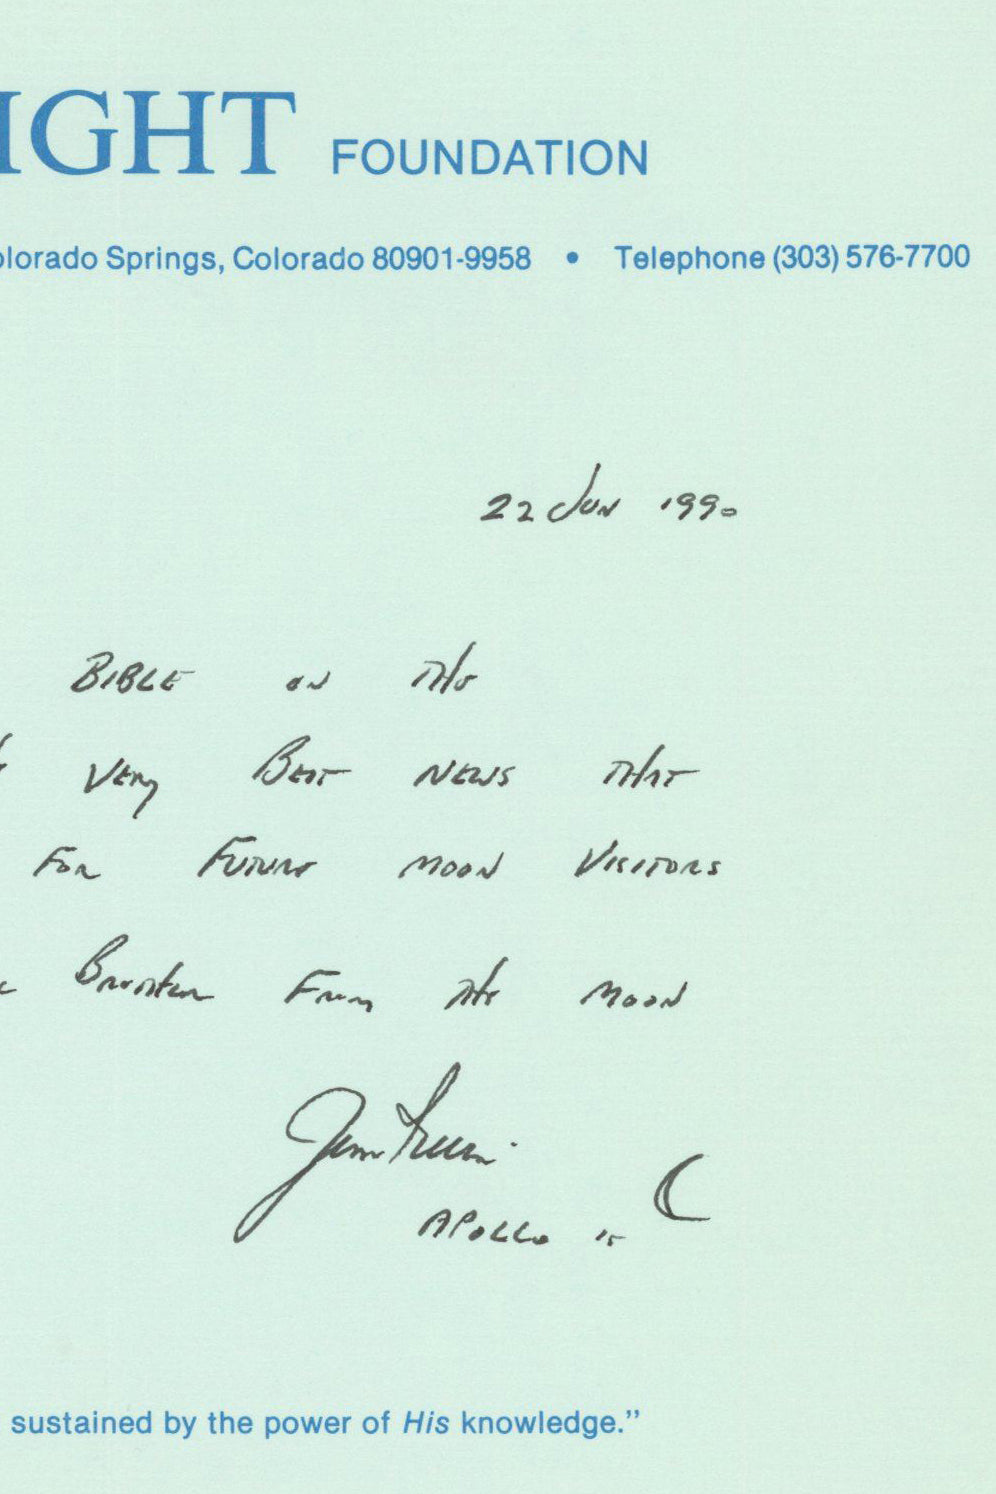 IGHT FOUNDATION
olorado Springs, Colorado 80901-9958 • Telephone (303) 576-7700
22 Jun 1990
BIBLE ON THE
VERY BEST NEWS THAT
FOR FUTURE MOON VISITORS
FROM THE MOON
Jim Irwin
APOLLO 15
sustained by the power of His knowledge.”